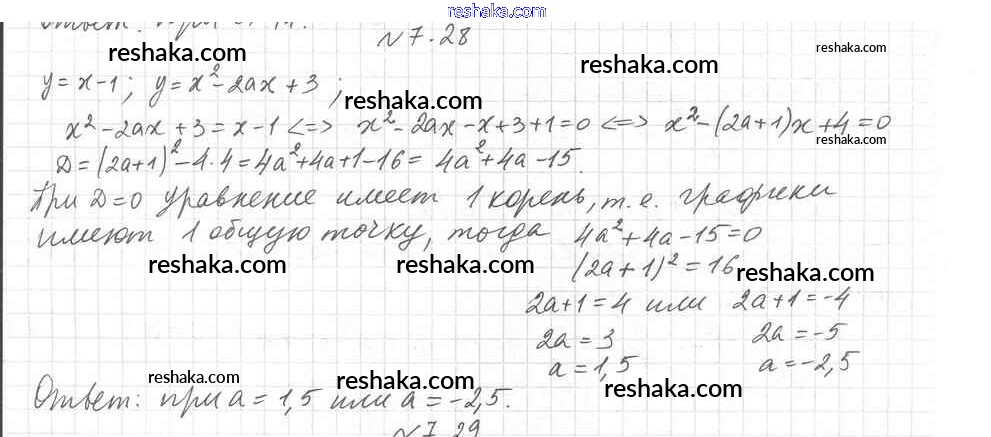 reshaka.com
Ответ: при
reshaka.com
№7.28
reshaka.com
reshaka.com
y=x-1; y=x²-2ax+3;
reshaka.com
x²-2ax+3=x-1 <=> x²-2ax-x+3+1=0 <=> x²-(2a+1)x+4=0
reshaka.com
D=(2a+1)²-4·4=4a²+4a+1-16=4a²+4a-15.
При D=0 уравнение имеет 1 корень, т.е. графики
имеют 1 общую точку, тогда 4a²+4a-15=0
reshaka.com
reshaka.com
(2a+1)²=16
reshaka.com
2a+1=4 или 2a+1=-4
2a=3 2a=-5
a=1,5 a=-2,5
reshaka.com
reshaka.com
reshaka.com
Ответ: при a=1,5 или a=-2,5.
№7.29